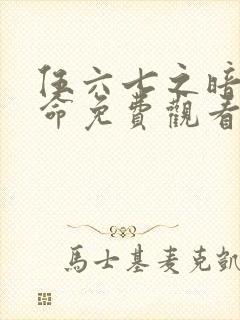 伍六七之暗
命免費觀看
馬士基麥克凱